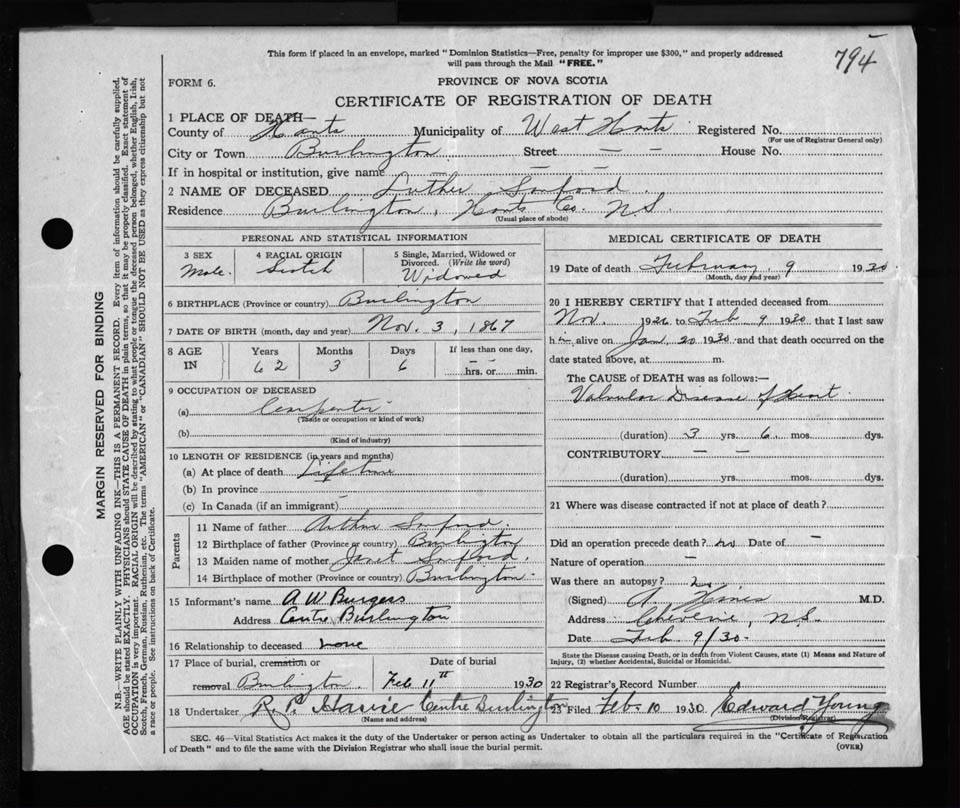 This form if placed in an envelope, marked "Dominion Statistics—Free, penalty for improper use $300," and properly addressed
will pass through the Mail "FREE."
794
FORM 6.
PROVINCE OF NOVA SCOTIA
CERTIFICATE OF REGISTRATION OF DEATH
1 PLACE OF DEATH—
County of Hants Municipality of West Hants Registered No.
(For use of Registrar General only)
City or Town Burlington Street — — House No.
If in hospital or institution, give name — — —
2 NAME OF DECEASED Luther Sanford
Residence Burlington, Hants Co. N.S.
(Usual place of abode)
PERSONAL AND STATISTICAL INFORMATION
3 SEX 4 RACIAL ORIGIN 5 Single, Married, Widowed or
Divorced. (Write the word)
Male. Scotch Widowed
6 BIRTHPLACE (Province or country) Burlington
7 DATE OF BIRTH (month, day and year) Nov. 3, 1867
8 AGE IN Years Months Days If less than one day,
62 3 6 — — hrs. or min.
9 OCCUPATION OF DECEASED
(a) Carpenter
(Trade or occupation or kind of work)
(b)
(Kind of industry)
10 LENGTH OF RESIDENCE (in years and months)
(a) At place of death Lifetime
(b) In province
(c) In Canada (if an immigrant) —
Parents
11 Name of father Arthur Sanford.
12 Birthplace of father (Province or country) Burlington
13 Maiden name of mother Janet Sanford.
14 Birthplace of mother (Province or country) Burlington
15 Informant's name A W Burgess
Address Centre Burlington
16 Relationship to deceased none
17 Place of burial, cremation or Date of burial
removal Burlington. Feb 11th 1930
18 Undertaker Centre Burlington
(Name and address)
MEDICAL CERTIFICATE OF DEATH
19 Date of death February 9 1930
(Month, day and year)
20 I HEREBY CERTIFY that I attended deceased from
Nov. 1926 to Feb 9 1930 that I last saw
him alive on Jan 20 1930 and that death occurred on the
date stated above, at m.
The CAUSE of DEATH was as follows:—
Valvular Disease of Heart
(duration) 3 yrs. 6 mos. dys.
CONTRIBUTORY — —
(duration) yrs. mos. dys.
21 Where was disease contracted if not at place of death?
Did an operation precede death? no Date of —
Nature of operation —
Was there an autopsy? no
(Signed) M.D.
Address N.S.
Date Feb 9/30
State the Disease causing Death, or in death from Violent Causes, state (1) Means and Nature of
Injury, (2) whether Accidental, Suicidal or Homicidal.
22 Registrar's Record Number
23 Filed Feb. 10 1930 Edward Young
(Division Registrar)
SEC. 46—Vital Statistics Act makes it the duty of the Undertaker or person acting as Undertaker to obtain all the particulars required in the "Certificate of Registration
of Death" and to file the same with the Division Registrar who shall issue the burial permit.
(OVER)
MARGIN RESERVED FOR BINDING
N.B.—WRITE PLAINLY WITH UNFADING INK—THIS IS A PERMANENT RECORD. Every item of information should be carefully supplied.
AGE should be stated EXACTLY. PHYSICIANS should STATE CAUSE OF DEATH in plain terms, so that it may be properly classified. Exact statement of
OCCUPATION is very important. RACIAL ORIGIN will be described by stating to what people or tongue the deceased person belonged, whether English, Irish,
Scotch, French, German, Russian, Ruthenian, etc. The terms "AMERICAN" or "CANADIAN" SHOULD NOT BE USED as they express citizenship but not
a race or people. See instructions on back of Certificate.